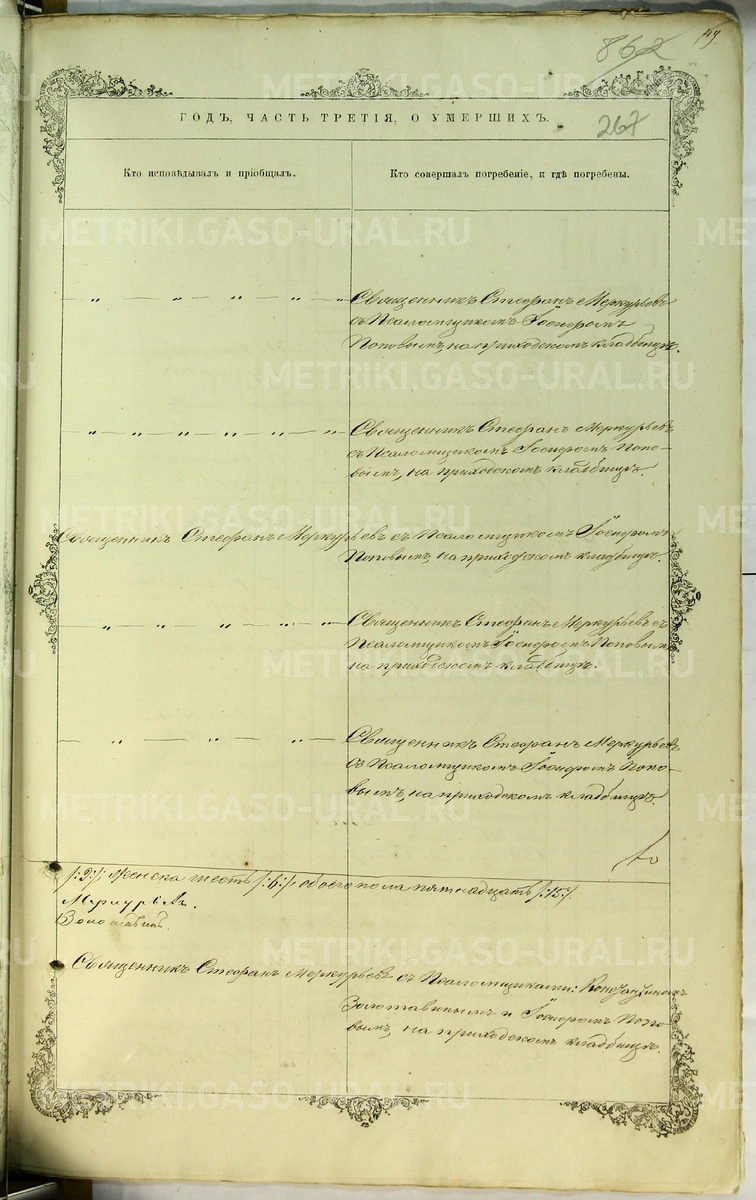 149.
862
ГОДЪ, ЧАСТЬ ТРЕТІЯ, О УМЕРШИХЪ.
267
Кто исповѣдывалъ и пріобщалъ.
Кто совершалъ погребеніе, и гдѣ погребены.
— „ — „ — „ — „ — „
Священникъ Стефанъ Меркурьевъ
съ Псаломщикомъ Іосифомъ
Поповымъ, на приходскомъ кладбищѣ.
„ — „ — „ — „ — „ — „
Священникъ Стефанъ Меркурьевъ
съ Псаломщикомъ Іосифомъ Попо-
вымъ, на приходскомъ кладбищѣ.
Священникъ Стефанъ Меркурьевъ съ Псаломщикомъ Іосифомъ
Поповымъ, на приходскомъ кладбищѣ.
— „ — „ — „ — „ — „
Священникъ Стефанъ Меркурьевъ съ
Псаломщикомъ Іосифомъ Поповымъ
на приходскомъ кладбищѣ.
— „ — „ — „ — „
Священникъ Стефанъ Меркурьевъ
съ Псаломщикомъ Іосифомъ Попо-
вымъ, на приходскомъ кладбищѣ.
/:9:/ женска шесть /:6:/ обоего пола пятнадцать /:15:/.
Меркурьевъ.
Священникъ Стефанъ Меркурьевъ съ Псаломщиками: Константиномъ
Золотавинымъ и Іосифомъ Попо-
вымъ, на приходскомъ кладбищѣ.
METRIKI.GASO-URAL.RU